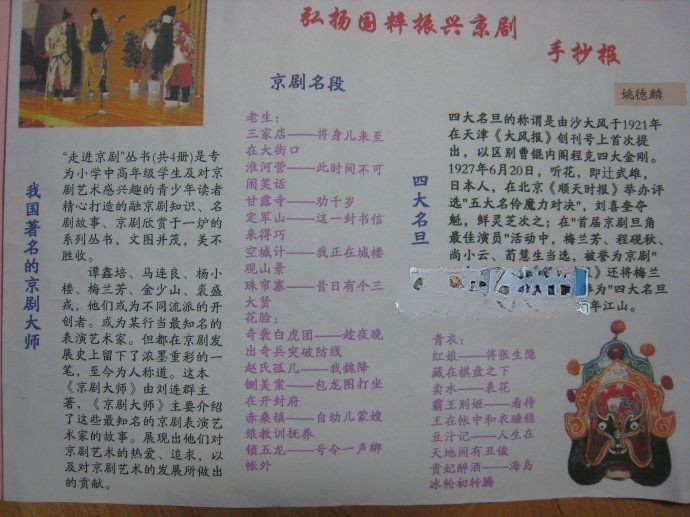 弘扬国粹振兴京剧
手抄报
姚德麟
京剧名段
我国著名的京剧大师
“走进京剧”丛书(共4册)是专
为小学中高年级学生及对京
剧艺术感兴趣的青少年读者
精心打造的融京剧知识、名
剧故事、京剧欣赏于一炉的
系列丛书，文图并茂，美不
胜收。
谭鑫培、马连良、杨小
楼、梅兰芳、金少山、裘盛
戎，他们或为不同流派的开
创者。或为某行当最知名的
表演艺术家。但都在京剧发
展史上留下了浓墨重彩的一
笔，至今为人称道。这本
《京剧大师》由刘连群主
著，《京剧大师》主要介绍
了这些最知名的京剧表演艺
术家的故事。展现出他们对
京剧艺术的热爱、追求，以
及对京剧艺术的发展所做出
的贡献。
老生：
三家店——将身儿来至
在大街口
淮河营——此时间不可
闹笑话
甘露寺——劝千岁
定军山——这一封书信
来得巧
空城计——我正在城楼
观山景
珠帘寨——昔日有个三
大贤
花脸：
奇袭白虎团——趁夜晚
出奇兵突破防线
赵氏孤儿——我魏降
铡美案——包龙图打坐
在开封府
赤桑镇——自幼儿蒙嫂
娘教训抚养
锁五龙——号令一声绑
帐外
四大名旦
四大名旦的称谓是由沙大风于1921年
在天津《大风报》创刊号上首次提
出，以区别曹锟内阁程克四大金刚。
1927年6月20日，听花，即辻武雄，
日本人，在北京《顺天时报》举办评
选"五大名伶魔力对决"，刘喜奎夺
魁，鲜灵芝次之；在"首届京剧旦角
最佳演员"活动中，梅兰芳、程砚秋、
尚小云、荀慧生当选，被誉为京剧"
》还将梅兰
为"四大名旦
年江山。
青衣：
红娘——将张生隐
藏在棋盘之下
卖水——表花
霸王别姬——看待
王在帐中和衣睡稳
豆汁记——人生在
天地间有丑俊
贵妃醉酒——海岛
冰轮初转腾